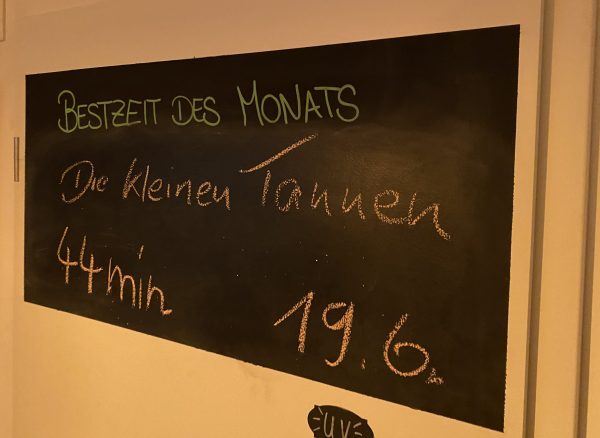 BESTZEIT DES MONATS
Die kleinen Tannen
44 min 19.6.
UV